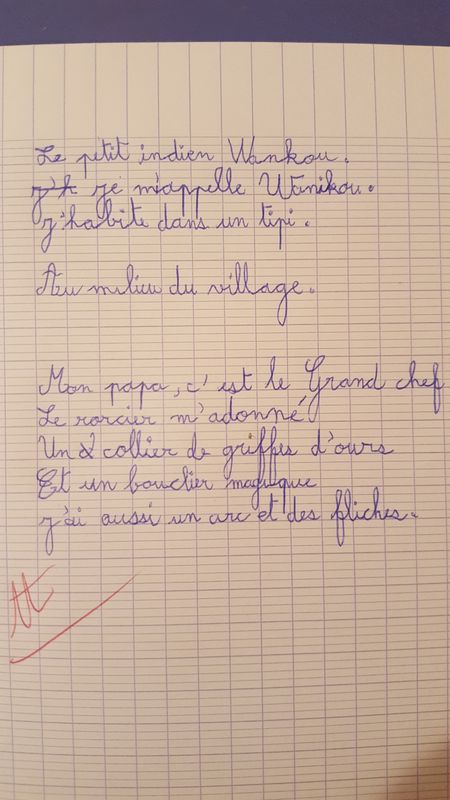 Le petit indien Wankou.
j'h je m'appelle Wanikou.
j'habite dans un tipi.
Au milieu du village.
Mon papa, c'est le Grand chef
Le sorcier m'adonné
Un collier de griffes d'ours
Et un bouclier magique
j'ai aussi un arc et des fliches.